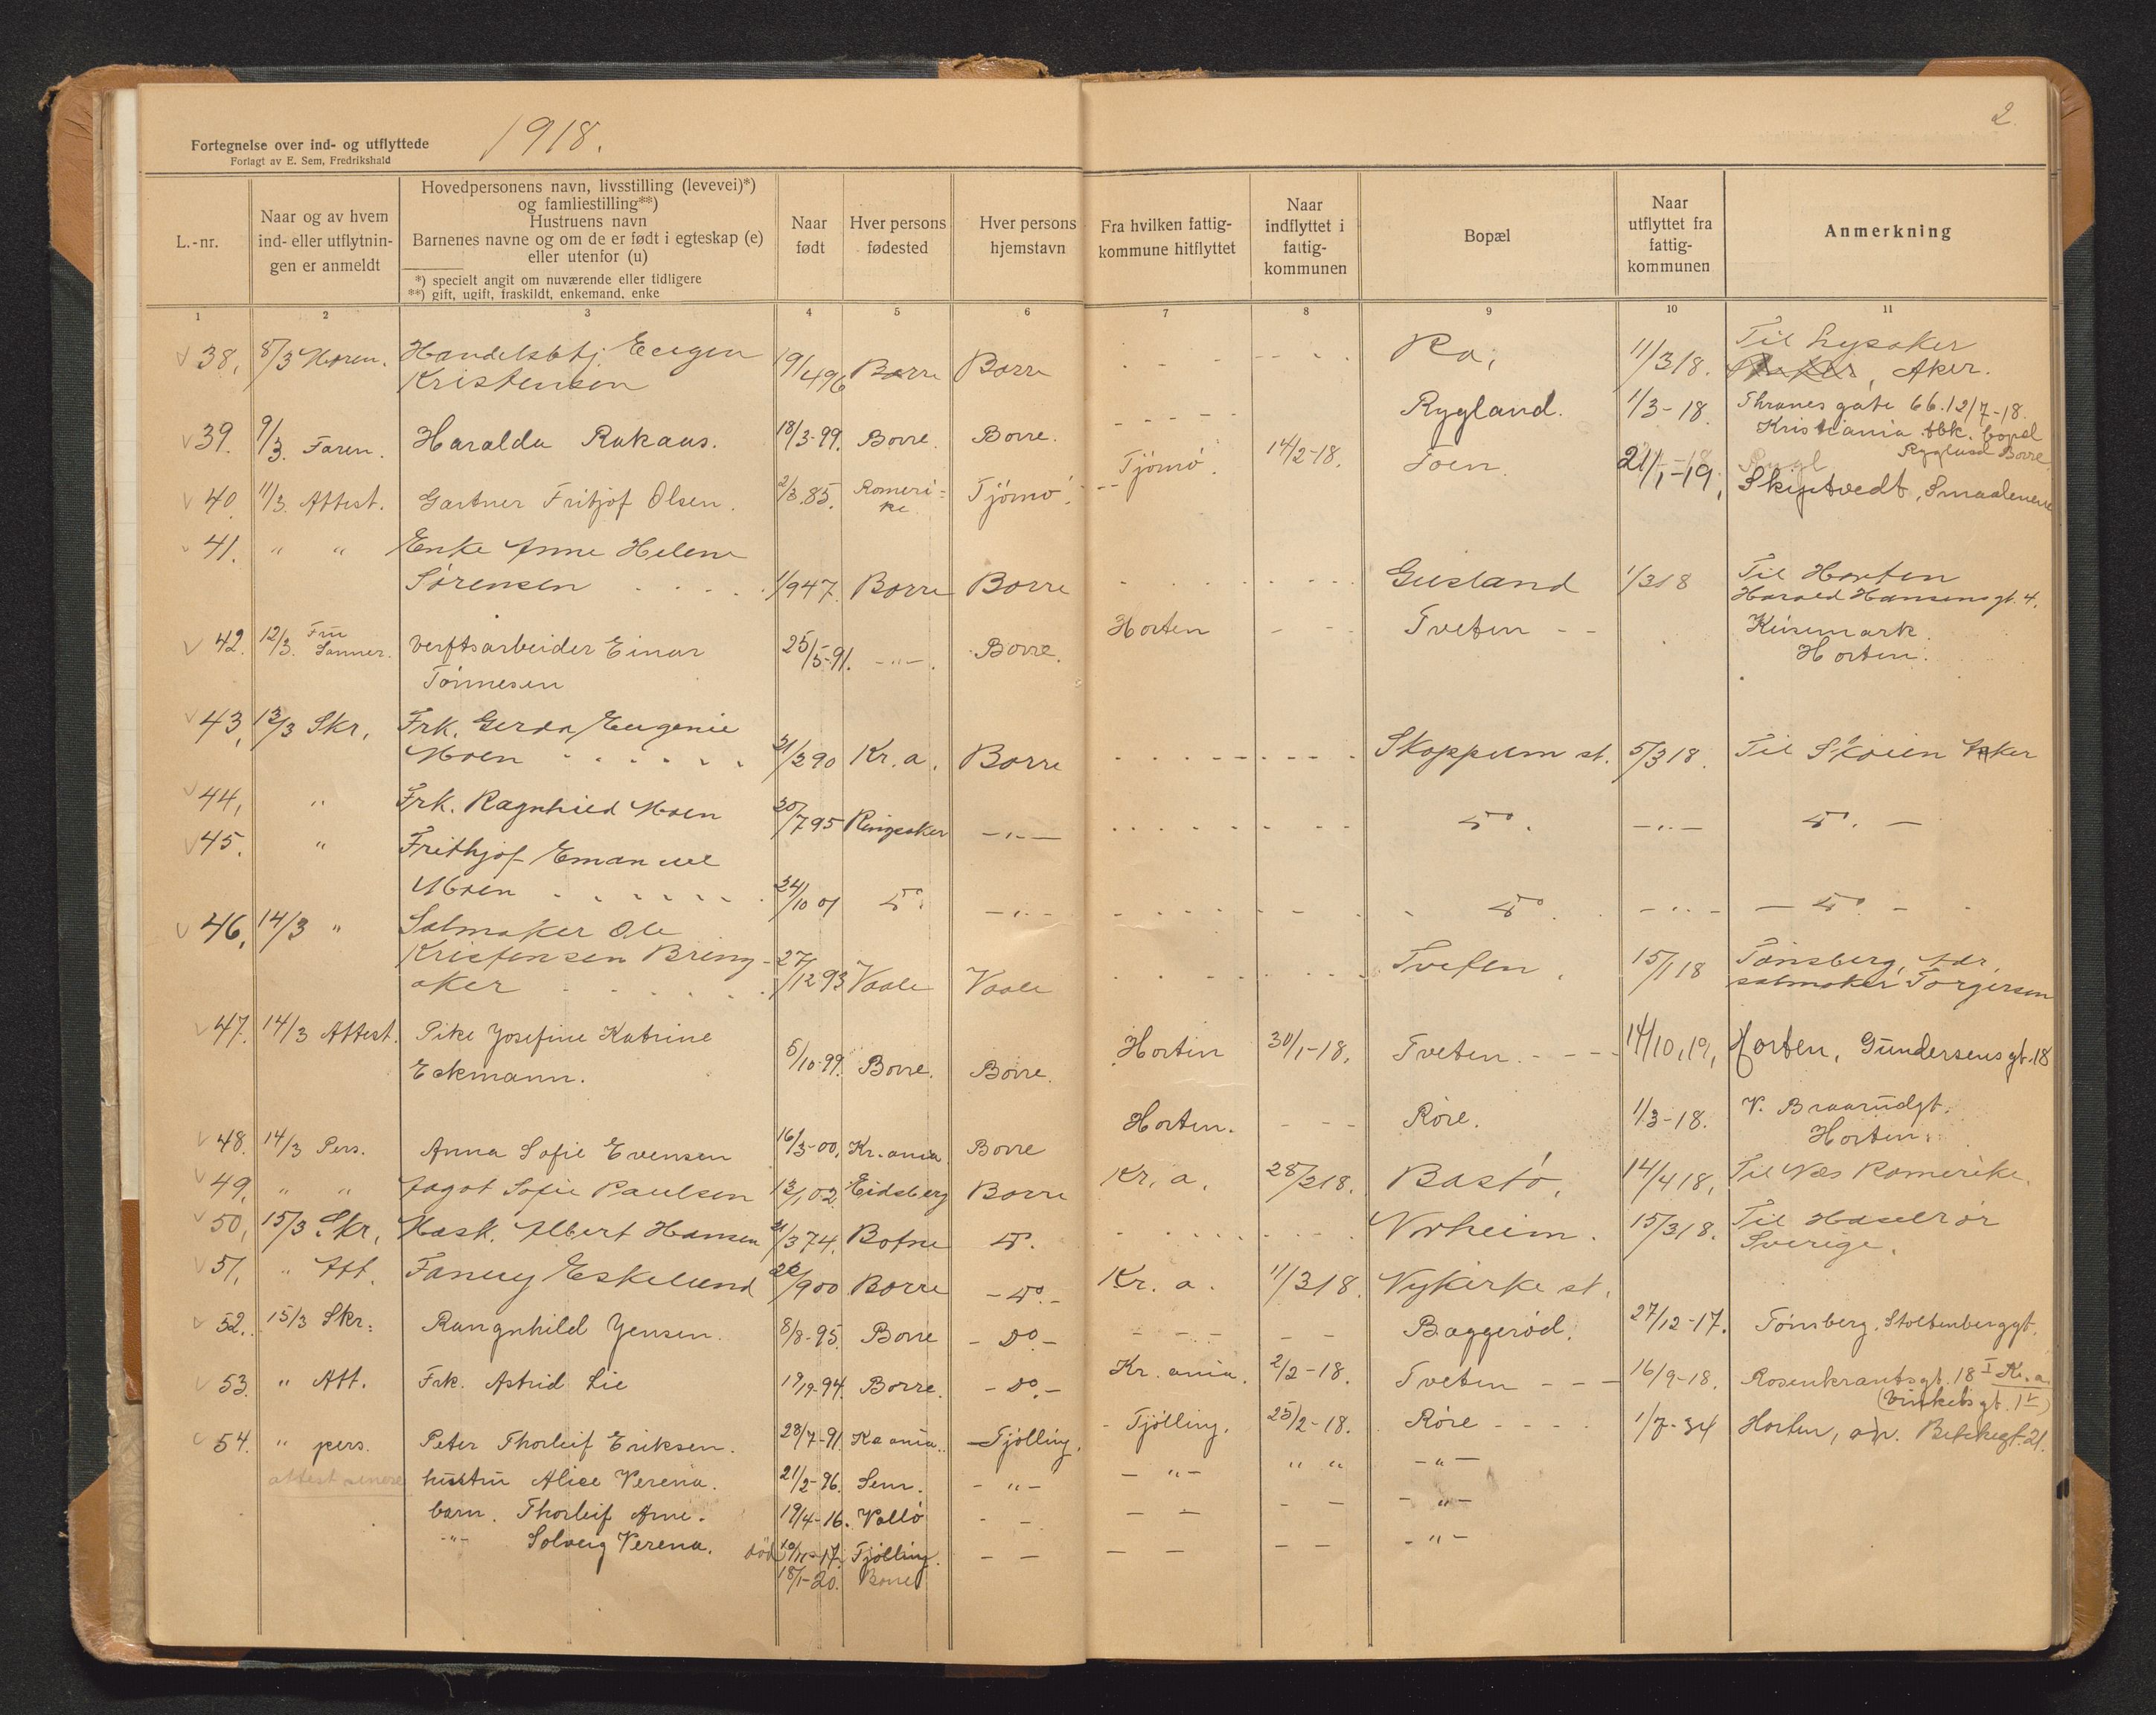 2
Fortegnelse over ind- og utflyttede
Forlagt av E. Sem, Fredrikshald
1918.
L.-nr.
Naar og av hvem
ind- eller utflytnin-
gen er anmeldt
Hovedpersonens navn, livsstilling (levevei)*)
og famliestilling**)
Hustruens navn
Barnenes navne og om de er født i egteskap (e)
eller utenfor (u)
*) specielt angit om nuværende eller tidligere
**) gift, ugift, fraskildt, enkemand, enke
Naar
født
Hver persons
fødested
Hver persons
hjemstavn
Fra hvilken fattig-
kommune hitflyttet
Naar
indflyttet i
fattig-
kommunen
Bopæl
Naar
utflyttet fra
fattig-
kommunen
Anmerkning
1 2 3 4 5 6 7 8 9 10 11
38, 8/3 Moren. Handelsbtj Eugen
Kristensen 19/4 96 Borre Borre Ra, 11/3 18. Til Lysaker
Aker.
39. 9/3. Faren. Haralda Rakaas. 18/3-99. Borre. Borre. Rygland. 1/3-18. Thranes gate 66. 12/7-18.
Kristiania tbk. bopel
Rygland Borre.
40. 11/3. Attest. Gartner Fritjof Olsen. 2/3.85. Romeri-
ke Tjømø. Tjömö. 14/2-18. Toen. 21/1-19. Skiptvedt, Smaalenene
41. " " Enke Anne Helene
Sørensen 1/9 47. Borre Borre Gusland 1/3 18 Til Horten
Harald Hansens gt. 4.
42. 12/3. Fru
Sanner. Verftsarbeider Einar
Tönnesen 25/5-91. -"-. Borre. Horten Tveten Keisemark.
Horten.
43, 13/3 Skr, Frk. Gerda Eugenie
Moen 31/3 90 Kr.a. Borre Skoppum st. 5/3 18. Til Skøien Aker
44, " Frk. Ragnhild Moen 30/7 95 Ringsaker -"- do. -"- do. -
45. " Frithjof Emanuel
Moen 24/10 01 do. -"- do. -"- - do. -
46, 14/3 " Salmaker Ole
Kristensen Bring-
aker 27/12 93 Vaale Vaale Tveten. 15/1 18 Tønsberg, Adr.
salmaker Torgersen
47. 14/3 Attest. Pike Josefine Katrine
Eckmann. 5/10-99. Borre. Borre. Horten 30/1-18. Tveten. 14/10,19, Horten, Gundersens gt. 18
48. 14/3 Pers. Anna Sofie Evensen 16/3-00. Kr.ania. Borre Horten. Röre. 1/3-18. V. Braarudgt.
Horten.
49, " " Aagot Sofie Paulsen 13/1 02. Eidsberg Borre Kr. a. 28/3 18. Bastø, 14/4 18, Til Næs Romerike.
50, 15/3 Skr, Mask. Albert Hansen 31/3 74. Botne do. Vorheim. 15/3 18. Til
Sverige.
51, " Att. Fanny Eskelund 26/9 00 Borre - do. - Kr. a. 11/3 18. Nykirke st.
52. 15/3 Skr: Rangnhild Jensen. 8/8-95. Borre - Do. - Baggeröd. 27/12-17. Tönsberg. Stoltenberggt.
53. " Att. Frk. Astrid Lie 19/12-94. Borre. - Do. - Kr. ania. 2/2-18. Tveten 16/9-18. Rosenkrantsgt. 18 I Kr.a.
54. " pers. Peter Thorleif Eriksen. 28/7-91. Kr ania. Tjölling. Tjölling. 25/2-18. Röre 1/7-34 Horten,
attest senere hustru Alice Verena. 21/2-96. Sem. - " - - " - " " - " -
barn. Thorleif Arne. 19/4-16. Vallö - - - - - - - " -
-"- Solveig Verena. död 10/11-17. Tjölling. - - - - - - - " -
18/1-20. Borre